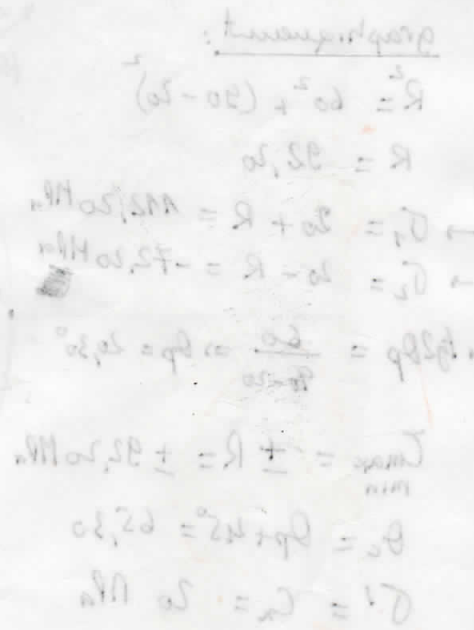 graphiquement :
R² = 60² + (90 - 20)²
R = 92,20
→ σ₁ = 20 + R = 112,20 MPa
→ σ₂ = 20 - R = -72,20 MPa
tg2θp = 60 / 90-20 ⇒ θp = 20,30°
τ max min = ± R = ± 92,20 MPa
θc = θp + 45° = 65,30
σ' = Cx = 20 MPa